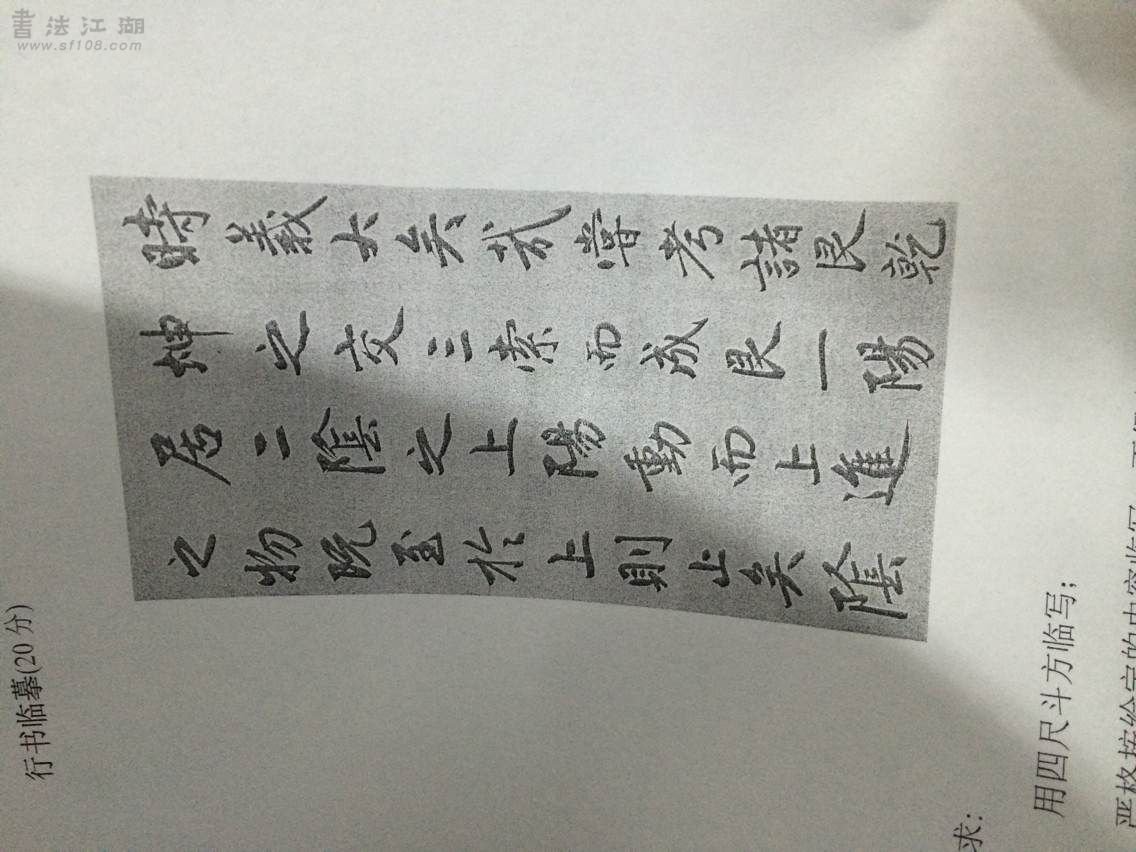 書法江湖
www.sf108.com
行书临摹(20分)
時義大矣哉嘗考諸艮乾
坤之交三索而成艮一陽
居二陰之上陽動而上進
之物既至於上則止矣陰
求:
用四尺斗方临写;
严格按给定的内容临写